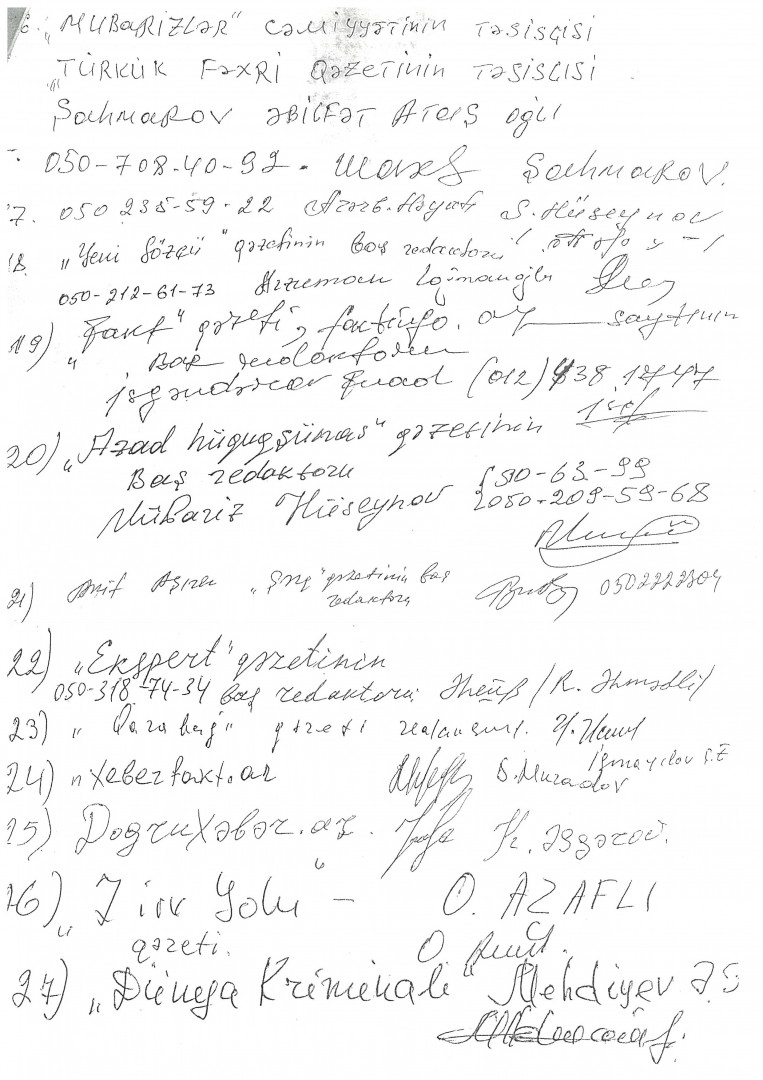 "MUBARİZLƏR" CƏMİYYƏTİNİN TƏSİSÇİSİ
"TÜRKÜK FƏXRİ QƏZETİNİN TƏSİSÇİSİ
ŞAHMAROV ƏBİLFƏT ATAŞ OĞLI
050-708-40-92. ŞAHMAROV.
7. 050 235-59-22 Azərb. Həyatı S. Hüseynov
18. "Yeni Sözçü" qəzetinin baş redaktoru
050-212-61-73 Loğmanoğlu
19) "Fakt" qəzeti, faktinfo. az saytının
Baş redaktoru
İsgəndərov Fuad (012) 438 17 47
20) "Azad hüquqşünas" qəzetinin
Baş redaktoru 590-63-99
Mübariz Hüseynov 050-209-59-68
21) Akif Aşırlı "Şərq" qəzetinin baş 0502222304
redaktoru
22) "Ekspert" qəzetinin
050-318-74-34 baş redaktoru /R. Əhmədli/
23) "Qarabağ" qəzeti
İsmayılov
24) "Xeberfakt.az S. Muradov
25) Doğruxəbər.az. K. Əsgərov.
26) "Zirv Yolu - O. AZAFLI
qəzeti.
27) "Dünya Kriminalı" Mehdiyev Ə.